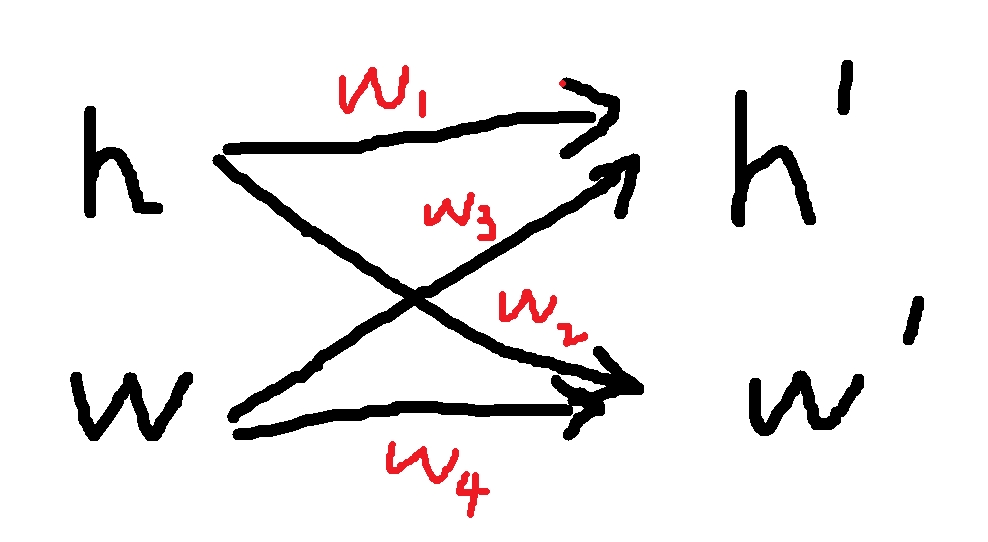 h w₁ h'
w₃
w₂
w w'
w₄